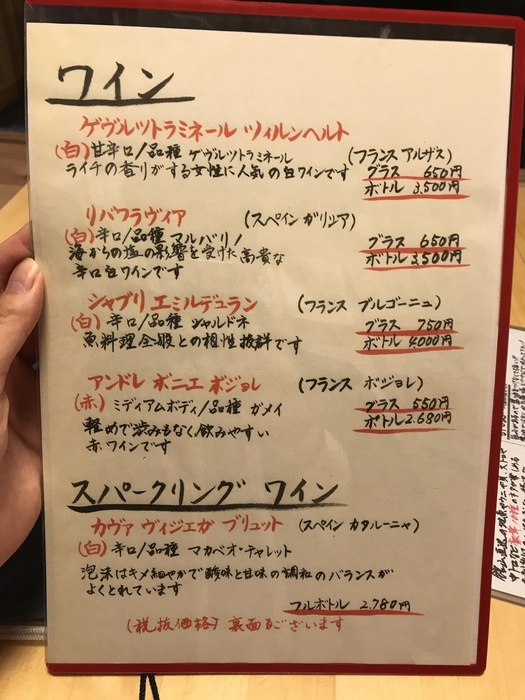 ワイン
ゲヴルットラミネール ツィルンヘルト
(白) 甘辛口/品種 ゲヴルットラミネール (フランス アルザス)
ライチの香りがする女性に人気の白ワインです グラス 650円
ボトル 3,500円
リバフラヴィア (スペイン ガリシア)
(白) 辛口/品種 マルバリノ グラス 650円
海からの塩の影響を受けた高貴な ボトル 3,500円
辛口白ワインです
シャブリ エミルデュラン (フランス ブルゴーニュ)
(白) 辛口/品種 シャルドネ グラス 750円
魚料理全般との相性抜群です ボトル 4,000円
アンドレ ボニエ ボジョレ (フランス ボジョレ)
(赤) ミディアムボディ/品種 ガメイ グラス 550円
軽めで渋みもなく飲みやすい ボトル 2.680円
赤ワインです
スパークリング ワイン
カヴァ ヴィジエガ ブリュット (スペイン カタルーニャ)
(白) 辛口/品種 マカベオ・チャレット
泡沫はキメ細やかで酸味と甘味の調和のバランスが
よくとれています
フルボトル 2.780円
(税抜価格) 裏面もございます